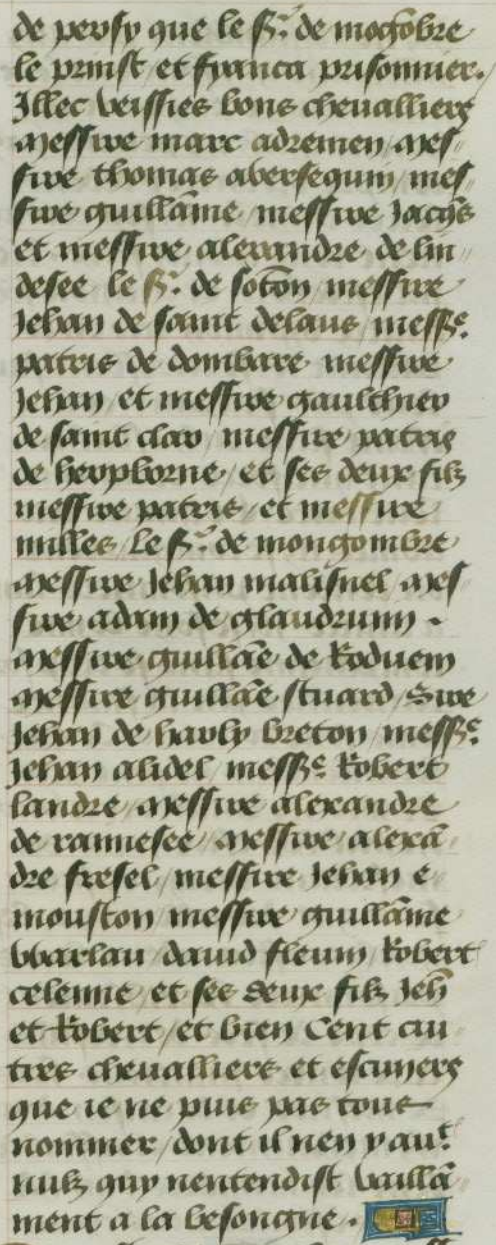 de persy que le sr. de mogõbre
le prinst et franca prisonnier.
Illec veissies bons chevalliers
Messire marc adremen / mes"
sire thomas abersequm / mes"
sire guillãme / messire Jacq̃s
et messire alexandre de lin"
desee le sr. de sotõn / messire
Jehan de saint delaus / messre.
patris de dombare messire
Jehan et messire gaulthier
de saint clar / messire patris
de hepborne / et ses deux filz
messire patris / et messire
milles / Le sr. de mongombre
Messire Jehan malisnel Mes
sire adam de glaudrinn .
Messire guillãe de Roduem
Messire guillãe stuard / Sire
Jehan de haoly breton / messre.
Jehan alidel / messre Robert
landre / Messire alexandre
de rannesee / Messire / alexã"
dre fresel / messire Jehan e"
mouston / messire guillãme
warlau / david fleum / Robert
celenne / et ses deux filz Jeh̃
et Robert / et bien Cent au"
tres chevalliers et escuiers
que ie ne puis pas tous
nommer / dont il nen y aut.
nulz quy nentendist vaillã"
ment a la besongne .